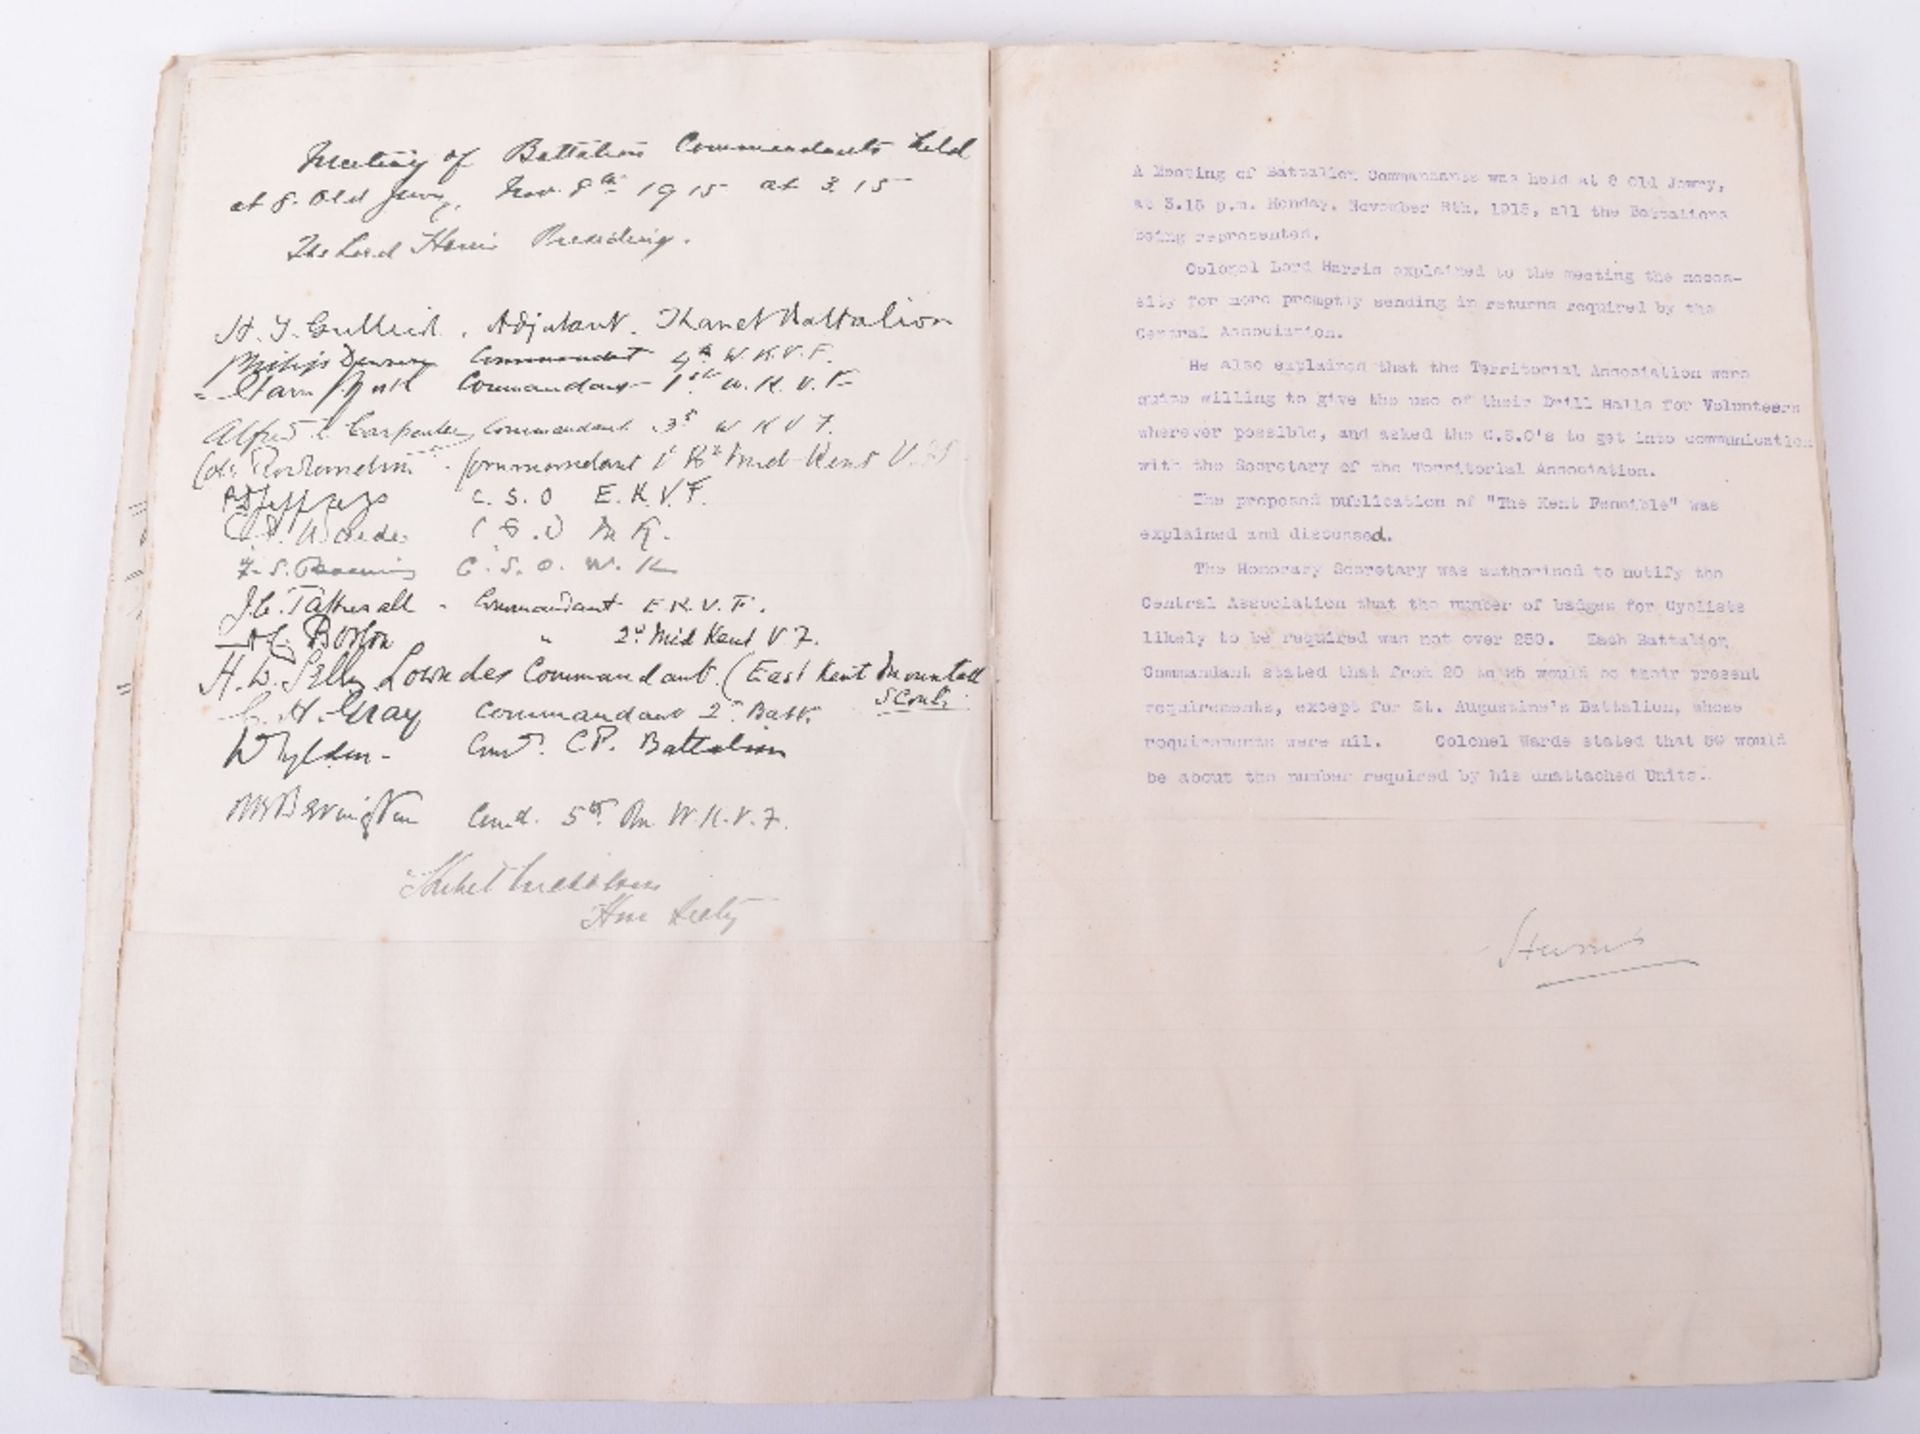 Meeting of Battalion Commandants held
at 8. Old Jewry, Nov. 8th 1915 at 3.15
The Lord Harris Presiding.
H. J. Adjutant. Thanet Battalion
Commandant 4th W.K.V.F.
Commandant 1st W.K.V.F.
Alfred Carpenter Commandant 3rd W K V F.
Commandant Mid-Kent
C.S.O E.K.V.F.
C.S.O M K.
F. S. C.S.O. W.K
Commandant E.K.V.F.
Borton " 2d Mid Kent V.F.
H. W. Selby Lowndes Commandant (East Kent Mounted
Scouts
H. Gray Commandant 2nd Batt.
Battalion
Bevington Comd. 5th Bn. W.K.V.F.
Hon Secty
A Meeting of Battalion Commandants was held at 8 Old Jewry,
at 3.15 p.m. Monday, November 8th, 1915, all the Battalions
being represented.
Colonel Lord Harris explained to the meeting the neces-
sity for more promptly sending in returns required by the
Central Association.
He also explained that the Territorial Association were
quite willing to give the use of their Drill Halls for Volunteers
wherever possible, and asked the C.S.O's to get into communication
with the Secretary of the Territorial Association.
The proposed publication of "The Kent Fencible" was
explained and discussed.
The Honorary Secretary was authorised to notify the
Central Association that the number of badges for Cyclists
likely to be required was not over 250. Each Battalion
Commandant stated that from 20 to 25 would be their present
requirements, except for St. Augustine's Battalion, whose
requirements were nil. Colonel Warde stated that 50 would
be about the number required by his unattached Units.
Harris